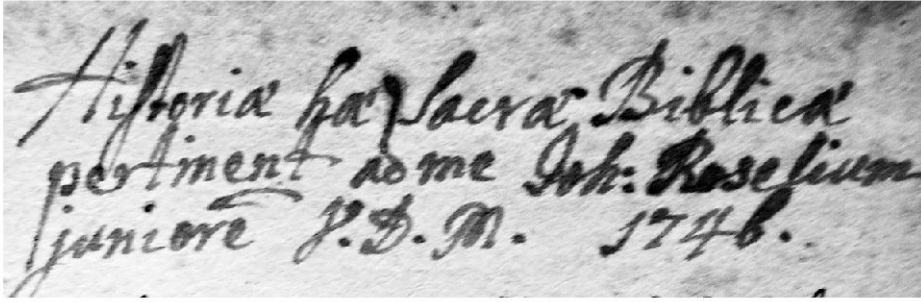 Historiæ hæ Sacræ Biblicæ
pertinent ad me Joh: Roselium
juniorē V. D. M. 1746.